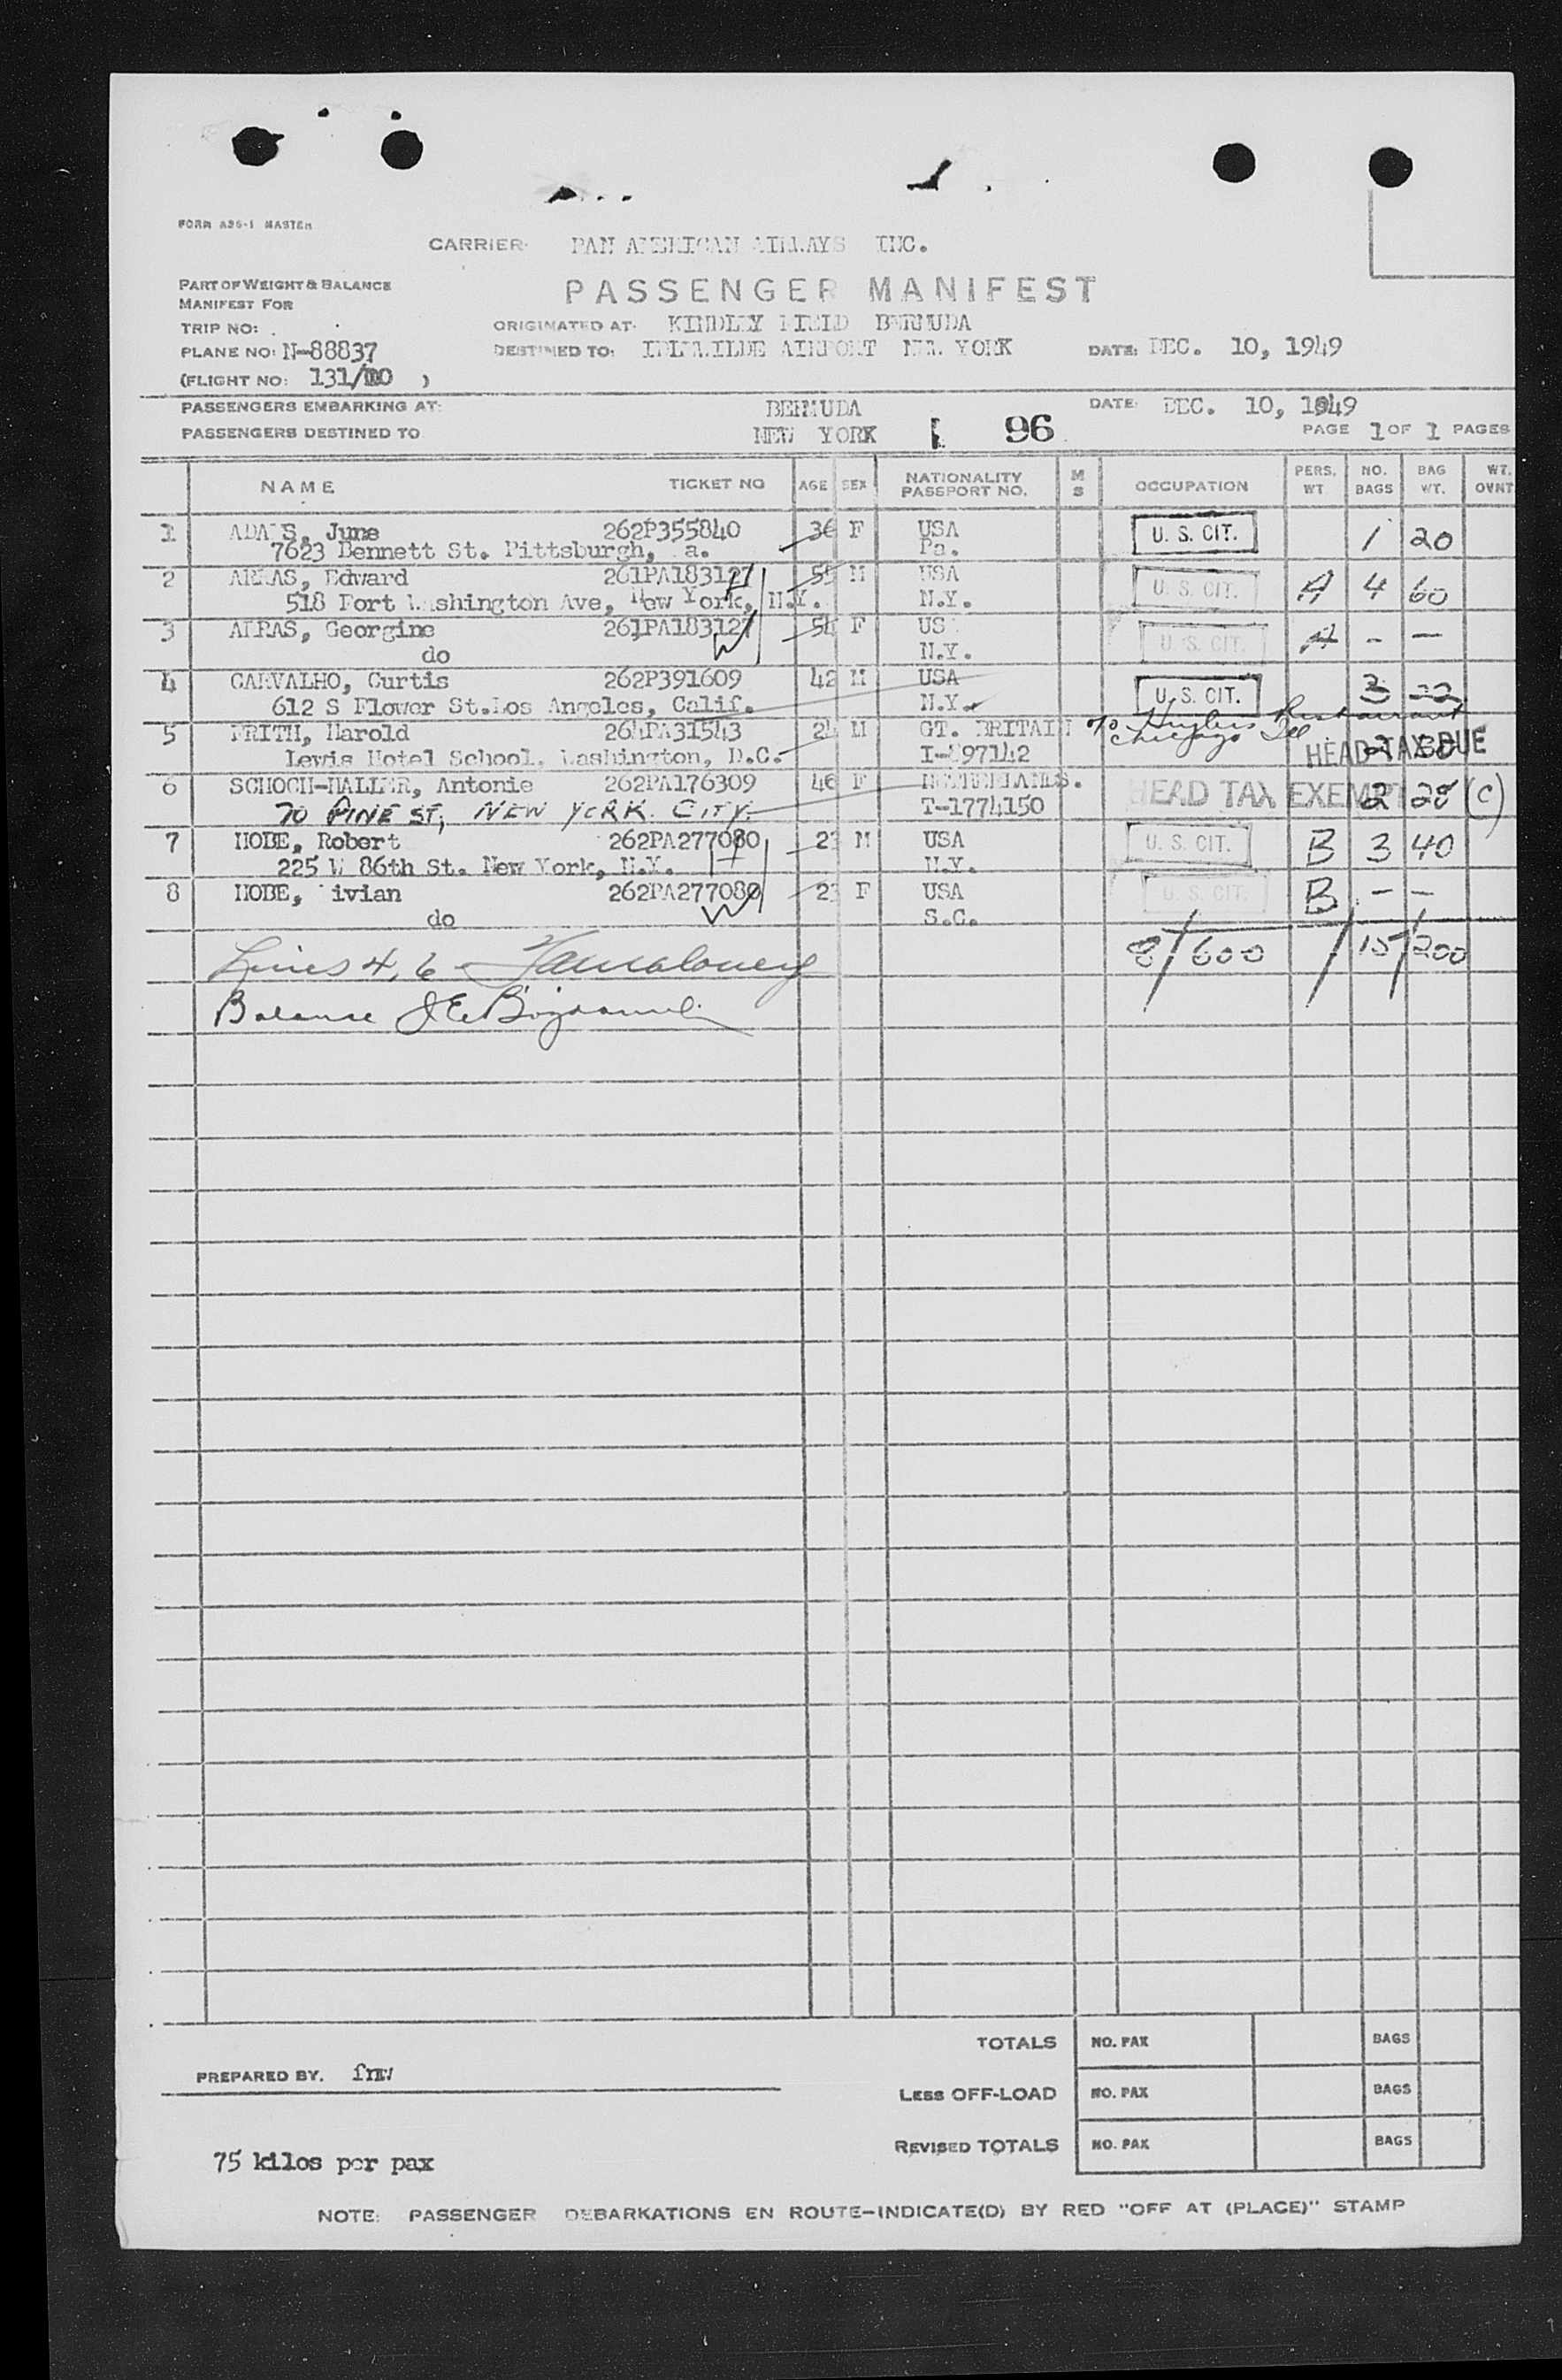 FORM A36-1 MASTER
CARRIER: PAN AMERICAN AIRWAYS INC.
PART OF WEIGHT & BALANCE
MANIFEST FOR
PASSENGER MANIFEST
TRIP NO:
ORIGINATED AT: KINDLEY FIELD BERMUDA
PLANE NO: N-88837
DESTINED TO: IDLEWILDE AIRPORT NEW YORK DATE: DEC. 10, 1949
(FLIGHT NO: 131/ )
PASSENGERS EMBARKING AT: BERMUDA DATE: DEC. 10, 1949
PASSENGERS DESTINED TO NEW YORK 96 PAGE 1 OF 1 PAGES
NAME TICKET NO AGE SEX NATIONALITY PASSPORT NO. M S OCCUPATION PERS. WT NO. BAGS BAG WT. WT. OVNT
1 ADA S, June 262P355840 36 F USA U. S. CIT. 1 20
7623 Bennett St. Pittsburgh, a. Pa.
2 Edward 261PA183127 55 M USA U. S. CIT. A 4 60
518 Fort Washington Ave, New York, N.Y. N.Y.
3 Georgine 261PA183127 54 F US U. S. CIT. A - -
do W N.Y.
4 CARVALHO, Curtis 262P391609 42 M USA U. S. CIT. 3 22
612 S Flower St. Los Angeles, Calif. N.Y.
5 FRITH, Harold 264PA31543 24 M GT. BRITAIN % Huylers Restaurant
Lewis Hotel School, Washington, D.C. I- 97142 Chicago Ill HEAD TAX DUE
6 SCHOCH-HALLER, Antonie 262PA176309 46 F NETHERLANDS. HEAD TAX EXEMPT 2 28 (C)
70 PINE ST, NEW YORK CITY. T-1774150
7 HOBE, Robert 262PA277080 23 M USA U. S. CIT. B 3 40
225 W 86th St. New York, N.Y. H N.Y.
8 HOBE, ivian 262PA277080 23 F USA U. S. CIT. B - -
do W S.C.
Lines 4, 6 - 8/600 / 15/200
Balance
TOTALS NO. PAX BAGS
PREPARED BY. fmw
LESS OFF-LOAD NO. PAX BAGS
REVISED TOTALS NO. PAX BAGS
75 kilos per pax
NOTE: PASSENGER DEBARKATIONS EN ROUTE-INDICATE(D) BY RED "OFF AT (PLACE)" STAMP